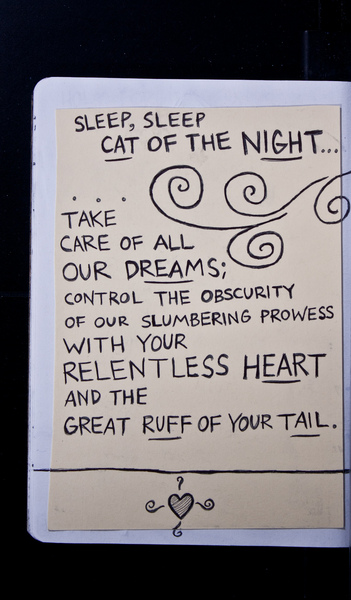 SLEEP, SLEEP
CAT OF THE NIGHT...
...
TAKE
CARE OF ALL
OUR DREAMS;
CONTROL THE OBSCURITY
OF OUR SLUMBERING PROWESS
WITH YOUR
RELENTLESS HEART
AND THE
GREAT RUFF OF YOUR TAIL.